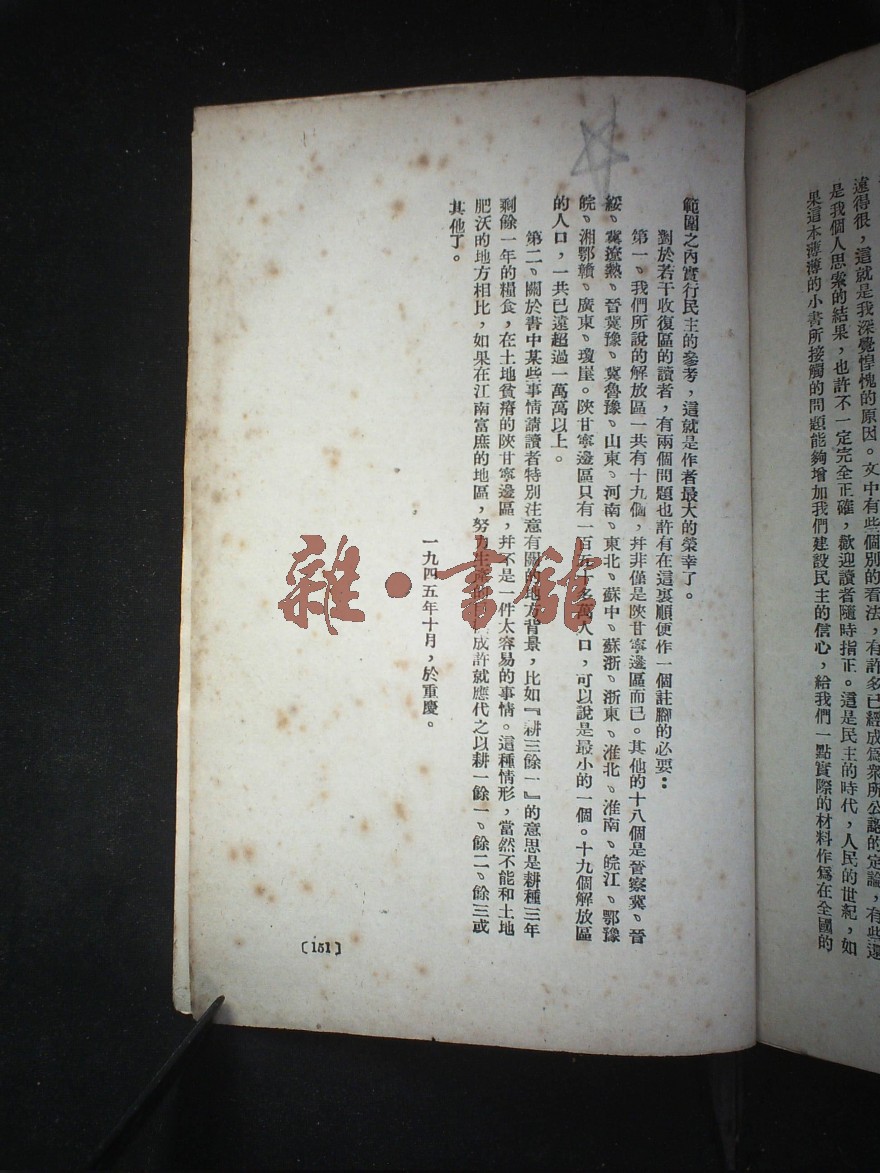 遠得很，這就是我深覺惶愧的原因。文中有些個別的看法，有許多已經成爲衆所公認的定論，有些還
是我個人思索的結果，也許不一定完全正確，歡迎讀者隨時指正。這是民主的時代，人民的世紀，如
果這本薄薄的小書所接觸的問題能夠增加我們建設民主的信心，給我們一點實際的材料作爲在全國的
範圍之內實行民主的參考，這就是作者最大的榮幸了。
對於若干收復區的讀者，有兩個問題也許有在這裏順便作一個註腳的必要：
第一、我們所說的解放區一共有十九個，幷非僅是陝甘寧邊區而已。其他的十八個是晉察冀、晉
綏、冀遼熱、晉冀豫、冀魯豫、山東、河南、東北、蘇中、蘇浙、浙東、淮北、淮南、皖江、鄂豫
皖、湘鄂贛、廣東、瓊崖。陝甘寧邊區只有一百五十多萬人口，可以說是最小的一個。十九個解放區
的人口，一共已遠超過一萬萬以上。
第二、關於書中某些事情請讀者特別注意有關的地方背景，比如『耕三餘一』的意思是耕種三年
剩餘一年的糧食，在土地貧瘠的陝甘寧邊區，幷不是一件太容易的事情。這種情形，當然不能和土地
肥沃的地方相比，如果在江南富庶的地區，努力生產的成許就應代之以耕一餘一、餘二、餘三或
其他了。
一九四五年十月，於重慶。
〔151〕
雜·書館